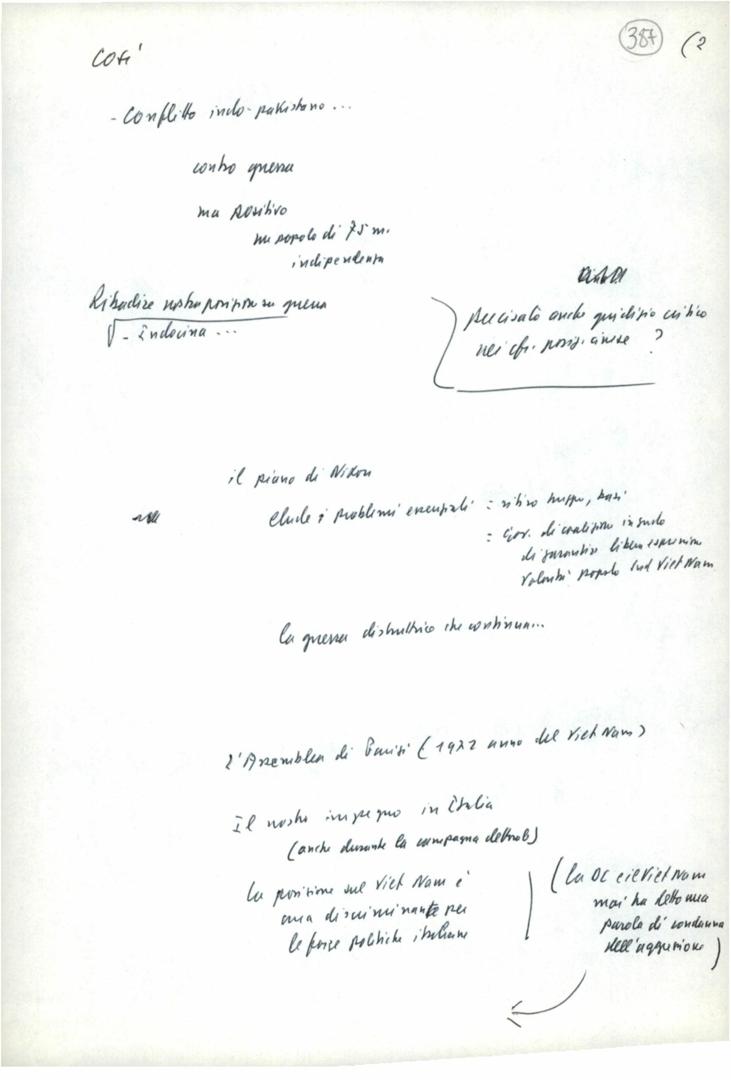 387 (2
Così
- Conflitto indo-pakistano ...
contro guerra
ma positivo
un popolo di 75 m.
indipendenza
Ribadire nostra posizione su guerra
- Indocina ...
precisato anche giudizio critico
nei cfr. posiz. cinese ?
il piano di Nixon
elude i problemi essenziali = ritiro truppe, basi
= Gov. di coalizione in grado
di garantire libera espressione
volontà popolo Sud Viet Nam
la guerra distruttrice che continua...
L'Assemblea di Parigi (1972 anno del Viet Nam)
Il nostro impegno in Italia
(anche durante la campagna elettorale)
La posizione sul Viet Nam è
una discriminante per
le forze politiche italiane
(la DC e il Viet Nam
mai ha detto una
parola di condanna
dell'aggressione)